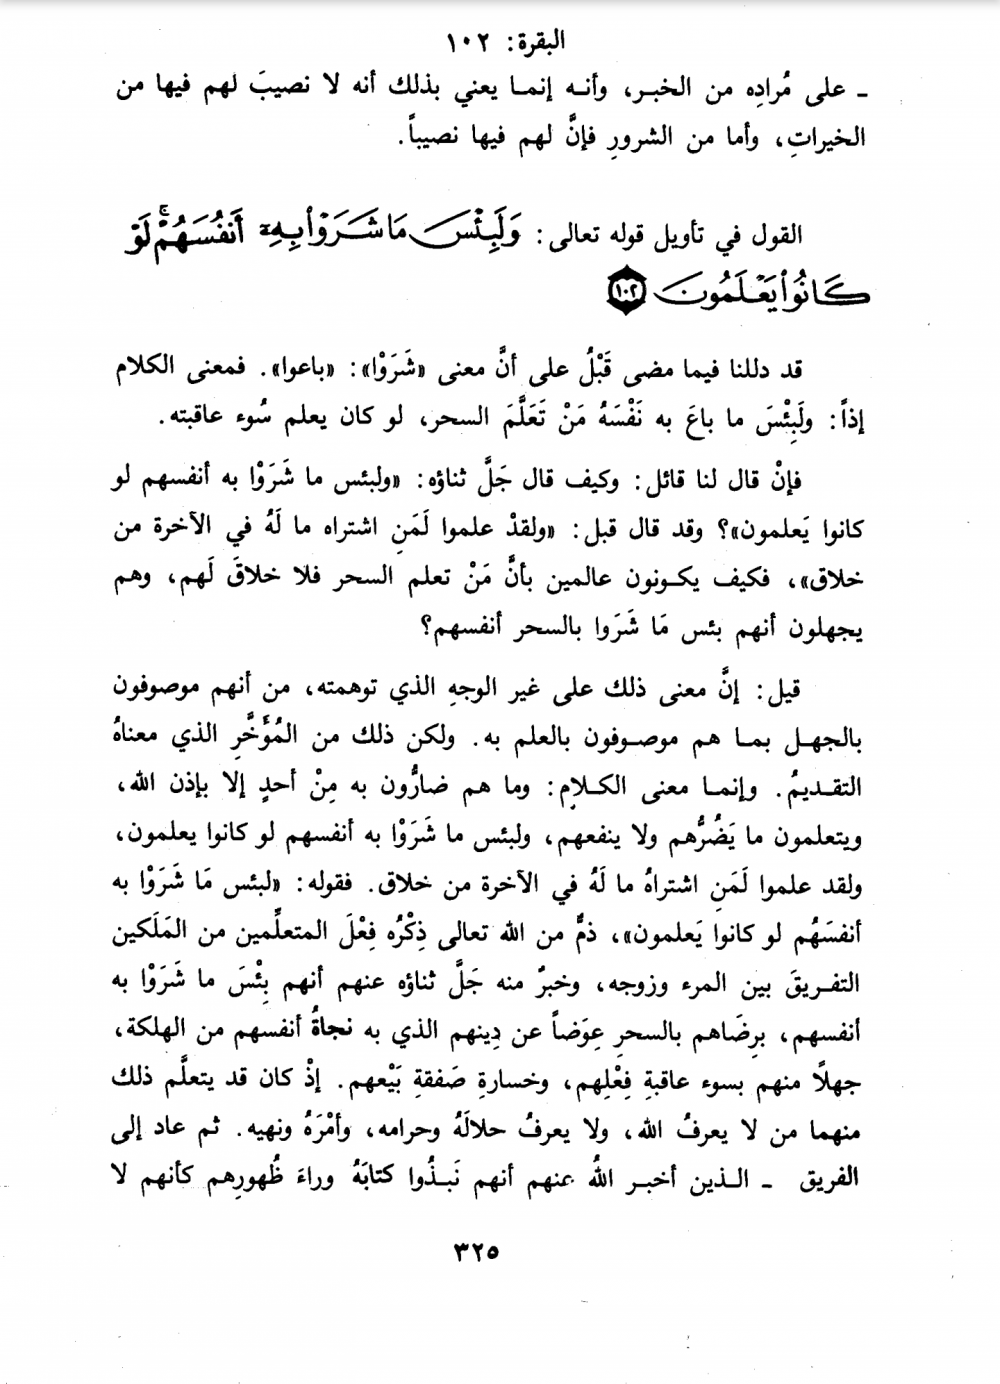 البقرة: ١٠٢
ـ على مُرادِه من الخبـر، وأنـه إنمـا يعني بذلك أنه لا نصيبَ لهم فيها من
الخيراتِ، وأما من الشرورِ فإنَّ لهم فيها نصيباً.
القول في تأويل قوله تعالى: وَلَبِئْسَ مَا شَرَوْا بِهِۦٓ أَنفُسَهُمْ ۚ لَوْ
كَانُوا۟ يَعْلَمُونَ ١٠٢
قد دللنا فيما مضى قَبْلُ على أنَّ معنى «شَرَوْا»: «باعوا». فمعنى الكلام
إذاً: ولَبِئْسَ ما باعَ به نَفْسَهُ مَنْ تَعَلَّمَ السحر، لو كان يعلم سُوء عاقبته.
فإنْ قال لنا قائل: وكيف قال جَلَّ ثناؤه: «ولبئس ما شَرَوْا به أنفسهم لو
كانوا يَعلمون»؟ وقد قال قبل: «ولقدْ علموا لَمَنِ اشتراه ما لَهُ في الآخرة من
خلاق»، فكيف يكـونون عالمين بأنَّ مَنْ تعلم السحر فلا خلاقَ لَهم، وهم
يجهلون أنهم بئس مَا شَرَوا بالسحر أنفسهم؟
قيل: إنَّ معنى ذلك على غير الوجهِ الذي توهمته، من أنهم موصوفون
بالجهـل بمـا هم موصـوفون بالعلم به. ولكن ذلك من المُؤَخَّرِ الذي معناهُ
التقـديمُ. وإنمـا معنى الكـلام: وما هم ضارُّون به مِنْ أحدٍ إلا بإذن الله،
ويتعلمون ما يَضُرُّهم ولا ينفعهم، ولبئس ما شَرَوْا به أنفسهم لو كانوا يعلمون،
ولقد علموا لَمَنِ اشتراهُ ما لَهُ في الآخرة من خلاق. فقوله: «لبئس مَا شَرَوْا به
أنفسَهُم لو كانوا يَعلمون»، ذمٌّ من الله تعالى ذِكْرُه فِعْلَ المتعلِّمين من المَلَكين
التفـريقَ بين المرء وزوجه، وخبرٌ منه جَلَّ ثناؤه عنهم أنهم بِئْسَ ما شَرَوْا به
أنفسهم، برِضَاهم بالسحرِ عِوَضاً عن دِينهم الذي به نجاةُ أنفسهم من الهلكة،
جهلًا منهم بسوء عاقبةِ فِعْلِهم، وخسارةِ صَفقةِ بَيْعهم. إذْ كان قد يتعلَّم ذلك
منهما من لا يعرفُ الله، ولا يعرفُ حلالَهُ وحرامه، وأمْرَهُ ونهيه. ثم عاد إلى
الفريق ـ الـذين أخبـر اللهُ عنهم أنهم نَبـذُوا كتابَهُ وراءَ ظُهورِهم كأنهم لا
٣٢٥